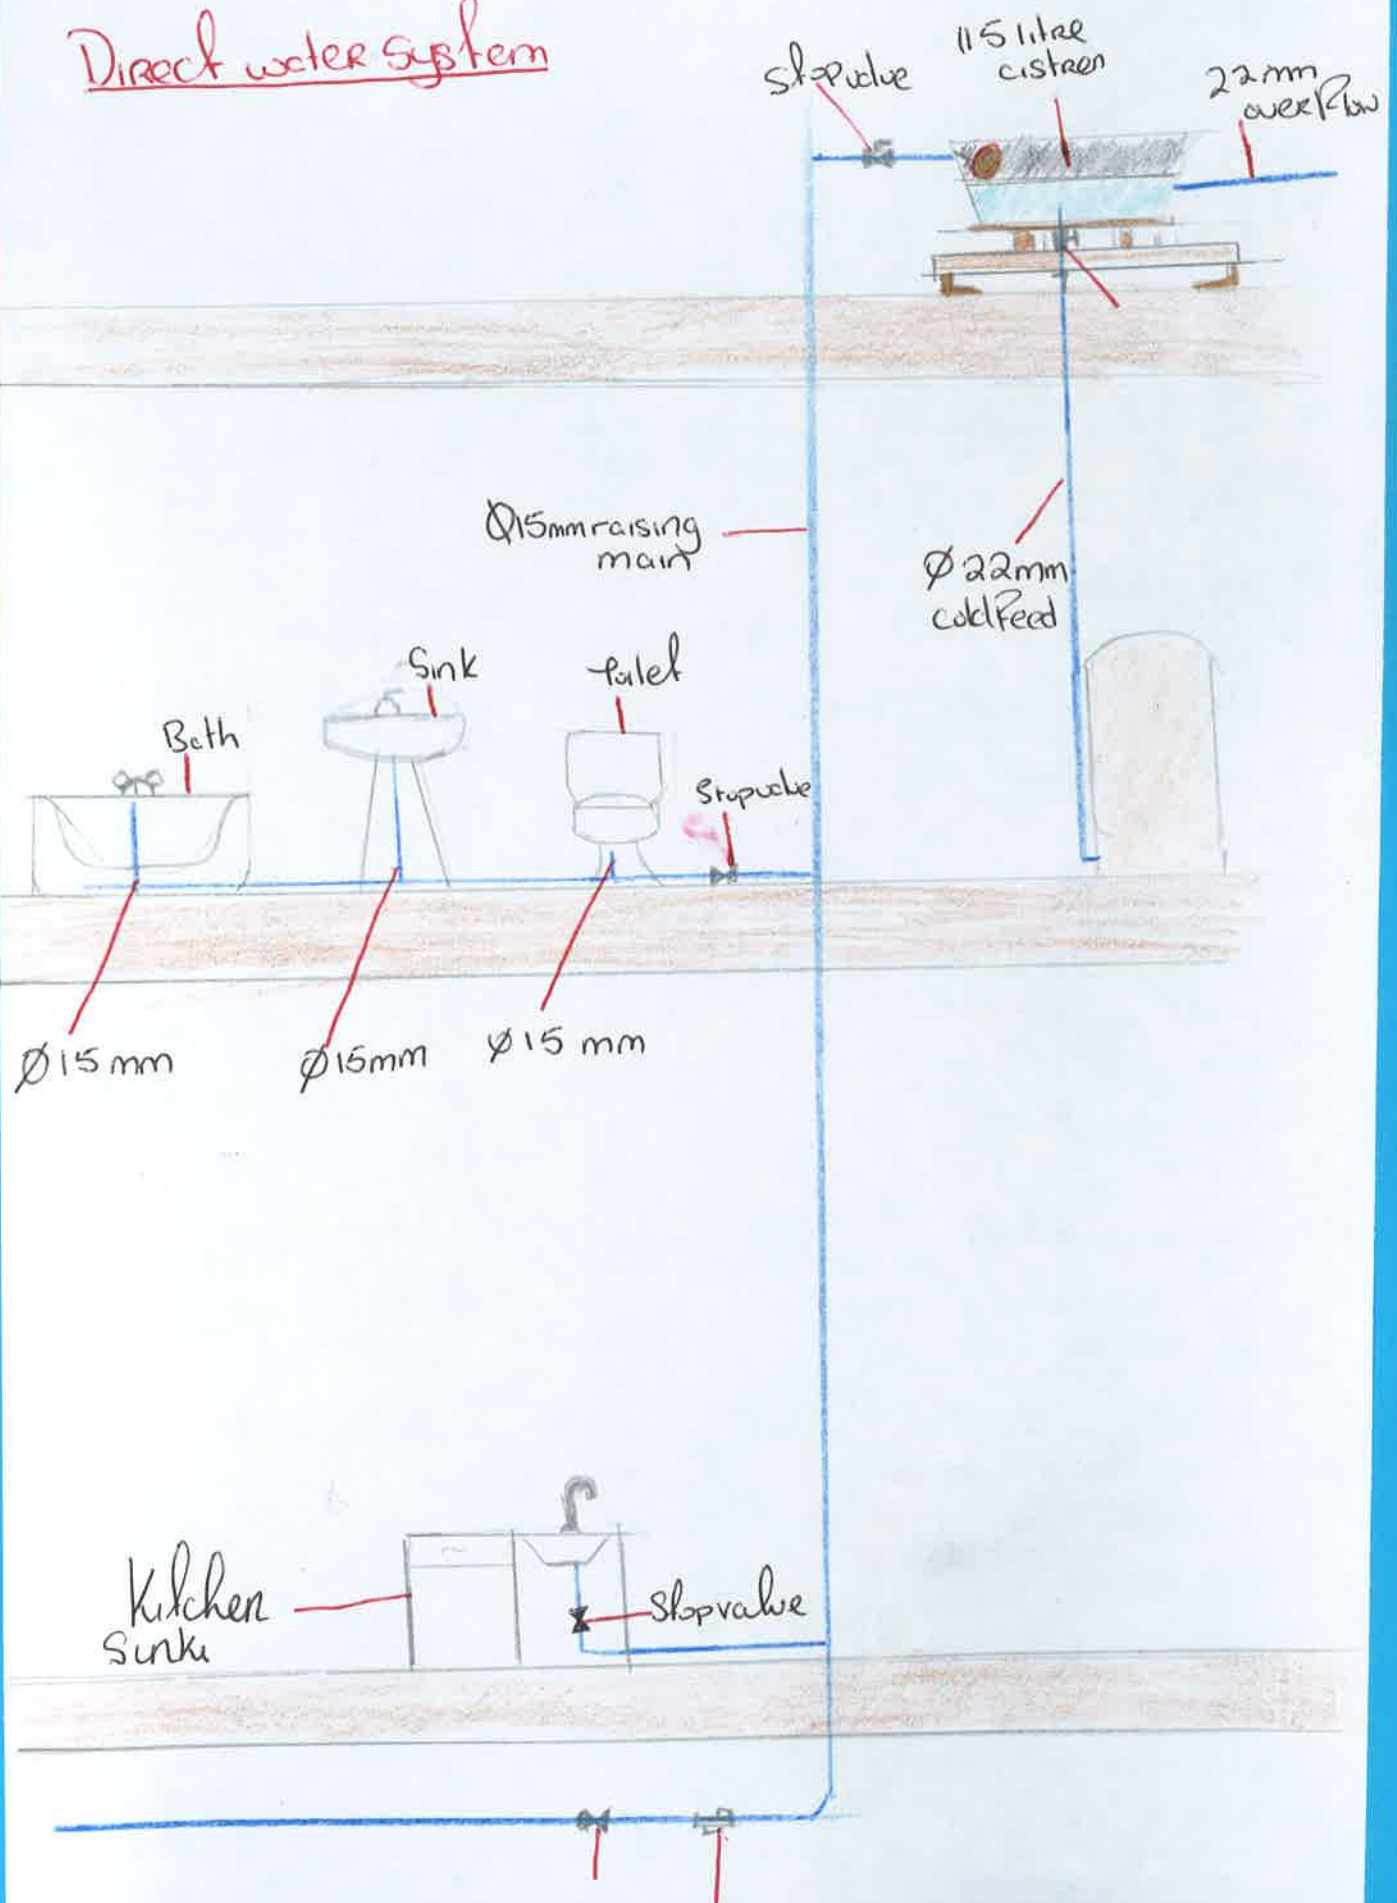 Direct water system
stopvalve
115 litre
cistren
22mm
overflow
Ø15mm raising
main
Ø 22mm
cold feed
Sink
toilet
Bath
Stopvalve
Ø15 mm
Ø15mm
Ø15 mm
Kitchen
Sink
Stopvalve